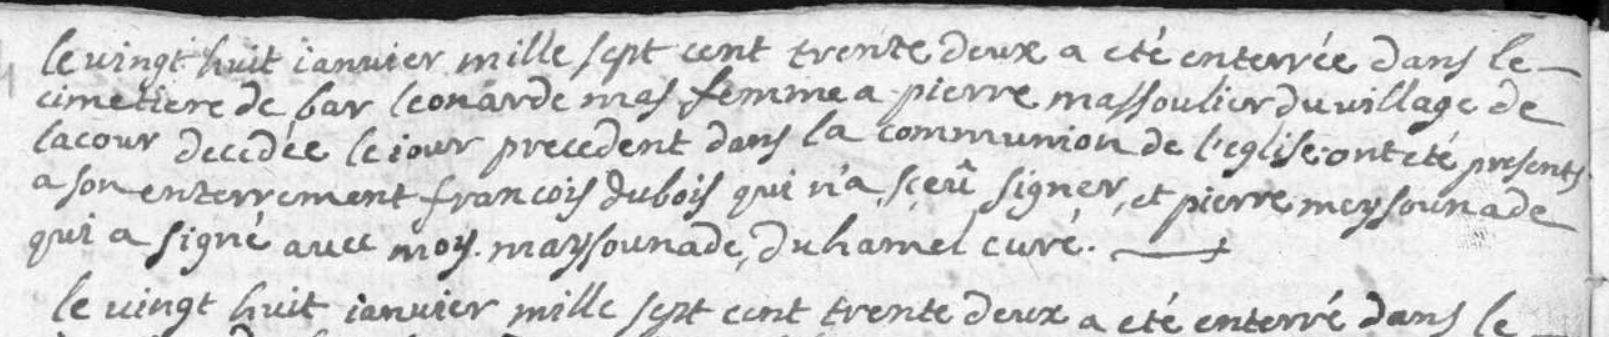 le vingt huit ianvier mille sept cent trente deux a eté enterrée dans le
cimetiere de bar leonarde mas femme a pierre massoulier du village de
lacour decedée le iour precedent dans la communion de l'eglise. ont eté presents
a son enterrement francois dubois qui n'a sçeû signer, et pierre meysounade
qui a signé avec moy. maysounade, duhamel curé.
le vingt huit ianvier mille sept cent trente deux a eté enterré dans le